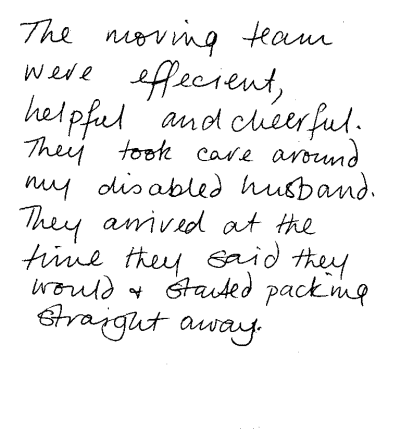 The moving team
were effecient,
helpful and cheerful.
They took care around
my disabled husband.
They arrived at the
time they said they
would & started packing
straight away.